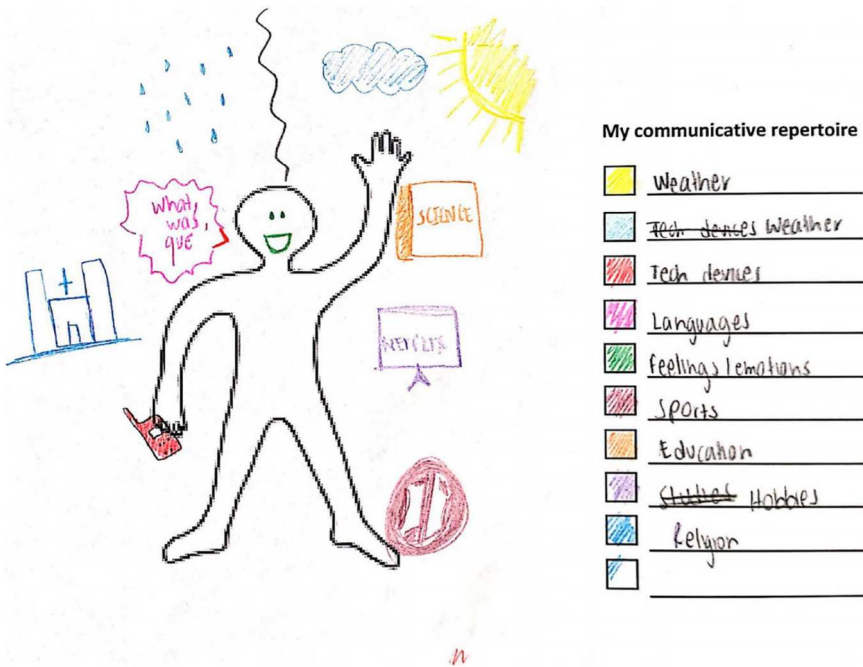 what,
was,
que
SCIENCE
NETFLIX
My communicative repertoire
Weather
Tech devices Weather
Tech devices
Languages
feelings/emotions
Sports
Education
Studies Hobbies
Religion